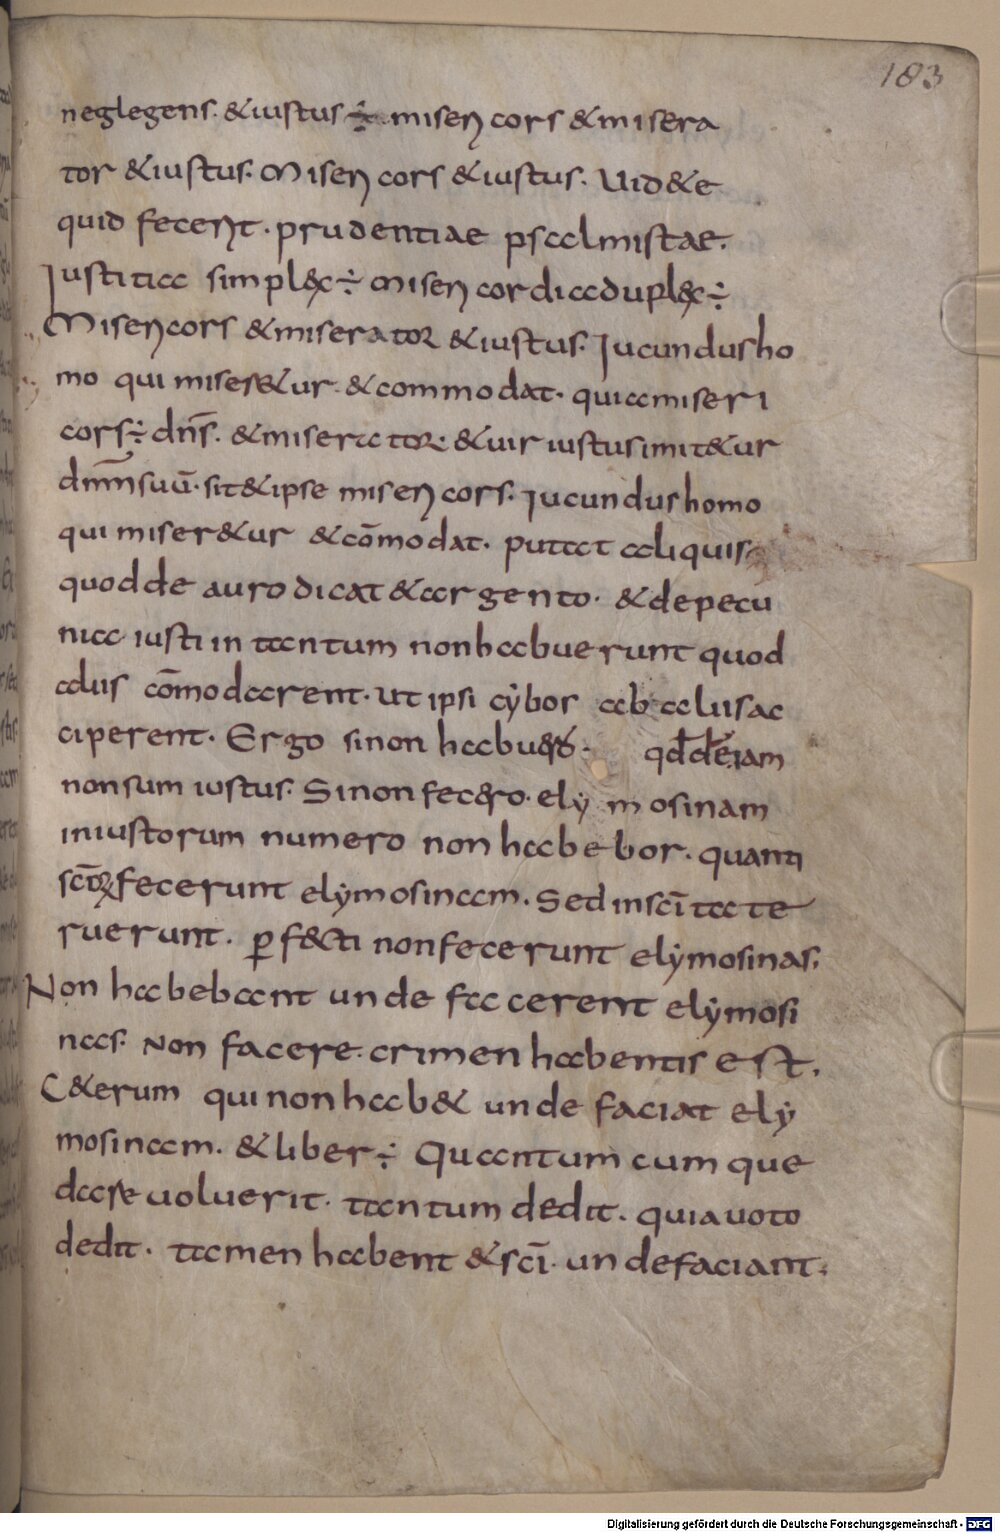 183
neglegens. &iustus ÷ misericors &misera
tor &iustus. Misericors &iustus. Uid&e
quid fecerit. prudentiae psalmistae.
Iustitia simplex ÷ misericordia duplex ÷
Misericors &miserator &iustus. Iucundus ho
mo qui miser&ur. &commodat. quia miseri
cors ÷ dn̄s. &miserator. &uir iustus imit&ur
dnm̄ suū. sit&ipse misericors. Iucundus homo
qui miser&ur &cōmodat. putat aliquis
quod de auro dicat &argento. &de pecu
nia. iusti in tantum non habuerunt quod
aliis cōmodarent. ut ipsi cybor ab aliis ac
ciperent. Ergo si non habuero. qd̄ dem iam
non sum iustus. Si non fecero. ely mosinam
in iustorum numero non habebor. quanti
scōrum fecerunt elymosinam. Sed in scī tate
ruerunt. ꝑf&ti non fecerunt elymosinas.
Non habebant unde facerent elymosi
nas. Non facere. crimen habentis est.
C&erum qui non hab& unde faciat ely
mosinam. &liber ÷ Quantum cumque
dare uoluerit. tantum dedit. quia uoto
dedit. tamen habent &scī. unde faciant.
Digitalisierung gefördert durch die Deutsche Forschungsgemeinschaft - DFG